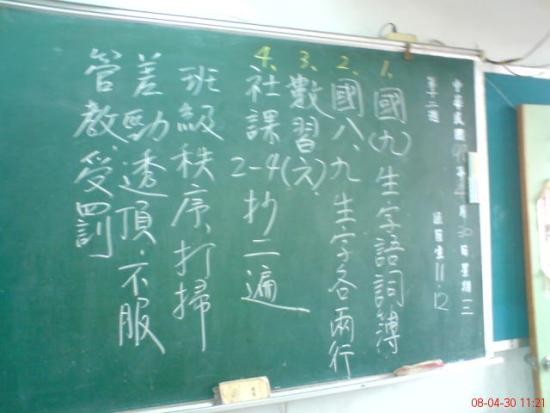 中華民國 年 月30日星期三
第十二週 值日生11.12
1、國(九)生字語詞簿
2、國八、九生字各兩行
3、數習(六)
4、社課2-4抄二遍
班級秩序、打掃
差勁透頂、不服
管教、受罰
08-04-30 11:21